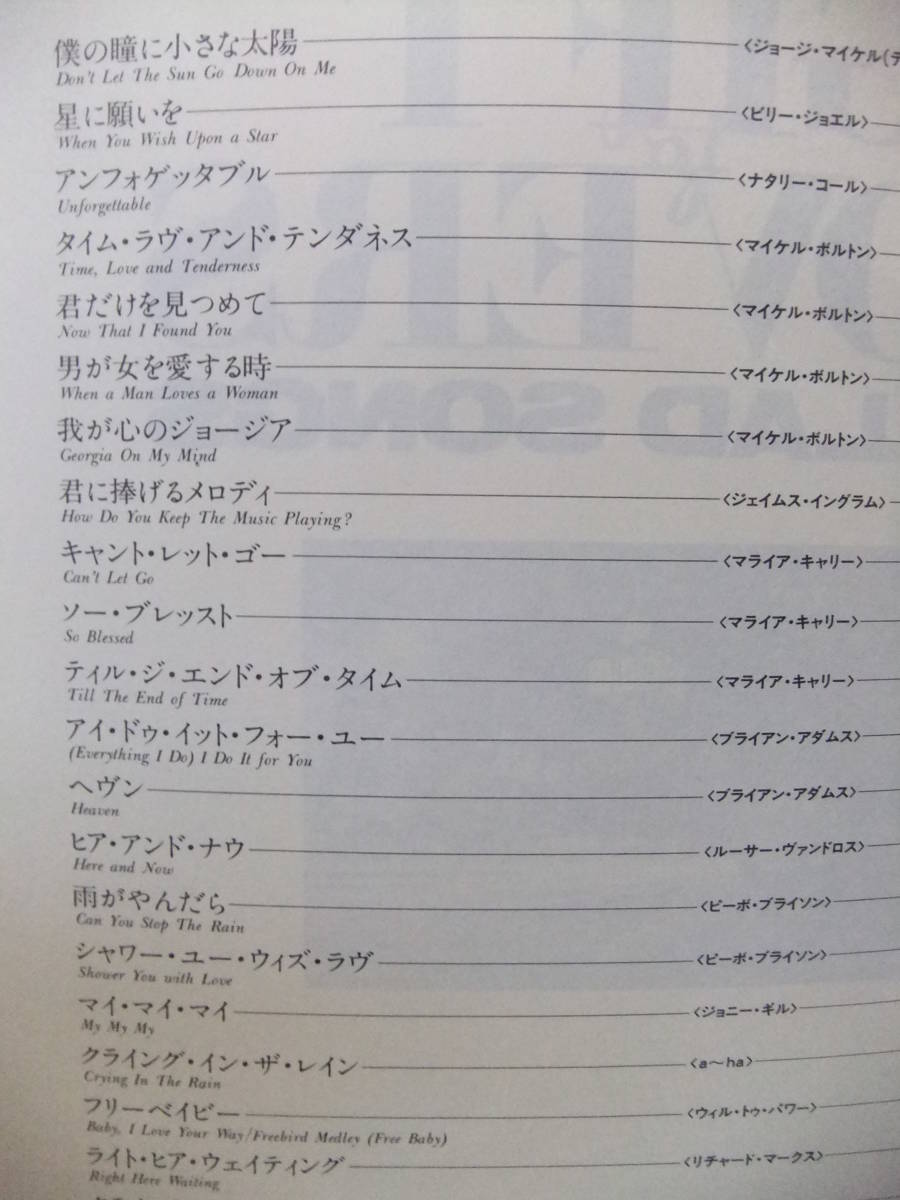 僕の瞳に小さな太陽 〈ジョージ・マイケル(デ
Don't Let The Sun Go Down On Me
星に願いを 〈ビリー・ジョエル〉
When You Wish Upon a Star
アンフォゲッタブル 〈ナタリー・コール〉
Unforgettable
タイム・ラヴ・アンド・テンダネス 〈マイケル・ボルトン〉
Time, Love and Tenderness
君だけを見つめて 〈マイケル・ボルトン〉
Now That I Found You
男が女を愛する時 〈マイケル・ボルトン〉
When a Man Loves a Woman
我が心のジョージア 〈マイケル・ボルトン〉
Georgia On My Mind
君に捧げるメロディ 〈ジェイムス・イングラム〉
How Do You Keep The Music Playing?
キャント・レット・ゴー 〈マライア・キャリー〉
Can't Let Go
ソー・ブレッスト 〈マライア・キャリー〉
So Blessed
ティル・ジ・エンド・オブ・タイム 〈マライア・キャリー〉
Till The End of Time
アイ・ドゥ・イット・フォー・ユー 〈ブライアン・アダムス〉
(Everything I Do) I Do It for You
ヘヴン 〈ブライアン・アダムス〉
Heaven
ヒア・アンド・ナウ 〈ルーサー・ヴァンドロス〉
Here and Now
雨がやんだら 〈ピーボ・ブライソン〉
Can You Stop The Rain
シャワー・ユー・ウィズ・ラヴ 〈ピーボ・ブライソン〉
Shower You with Love
マイ・マイ・マイ 〈ジョニー・ギル〉
My My My
クライング・イン・ザ・レイン 〈a〜ha〉
Crying In The Rain
フリーベイビー 〈ウィル・トゥ・パワー〉
Baby, I Love Your Way/Freebird Medley (Free Baby)
ライト・ヒア・ウェイティング 〈リチャード・マークス〉
Right Here Waiting